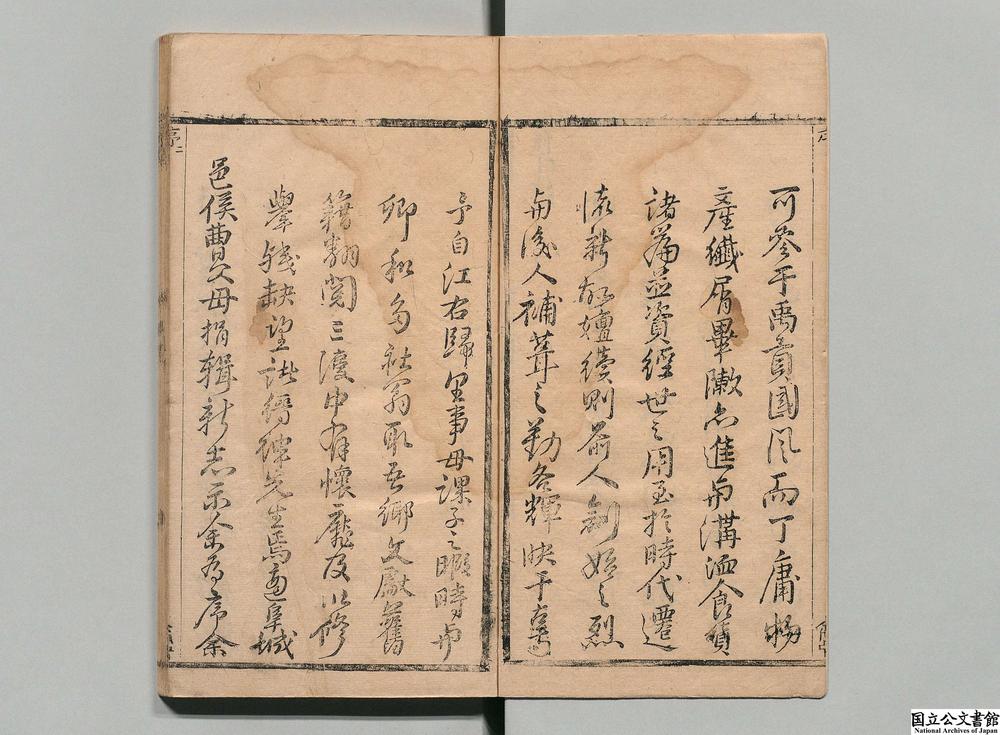 可參于禹貢國風而丁庸物
產纖屑畢臚亦進與溝洫食貨
諸篇並資經世之用至於時代遷
新故嬗續則前人創始之烈
與後人補葺之勤各輝映千古焉
予自江右歸里事母課子之暇時與
卿和 社翁取吾鄉文獻舊
籍翻閱三復中有懷 及以修
舉殘缺望諸縉紳先生焉適阜城
邑侯曹父母捐輯新志示余為序余
序
序二
国立公文書館
National Archives of Japan